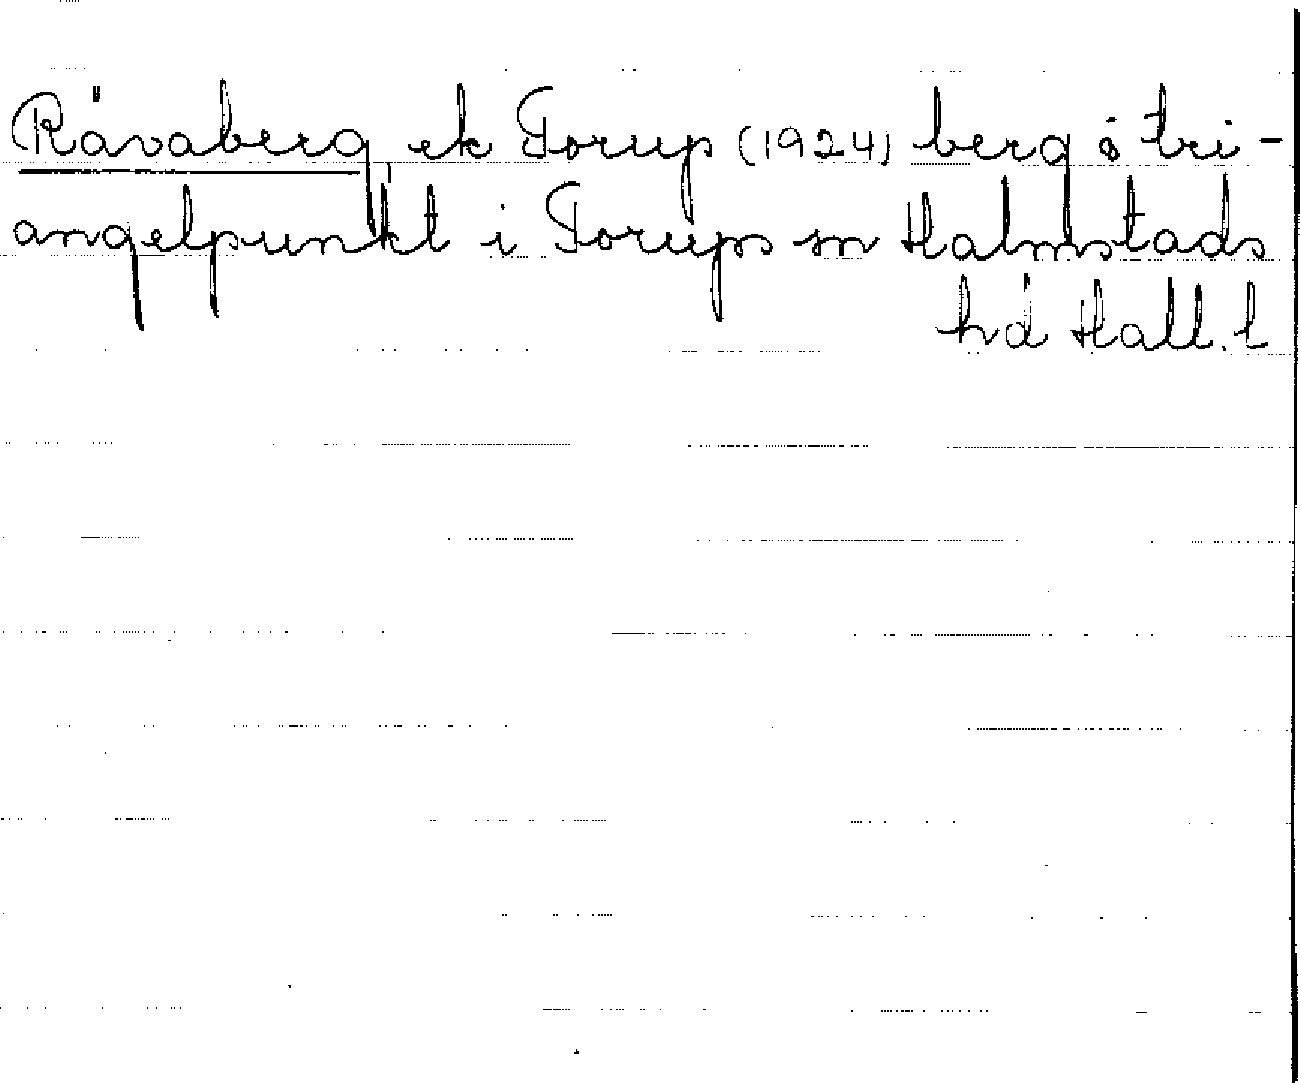 Rävaberg, ek Torup (1924) berg o tri-
angelpunkt i Torups sn Halmstads
hd Hall. l